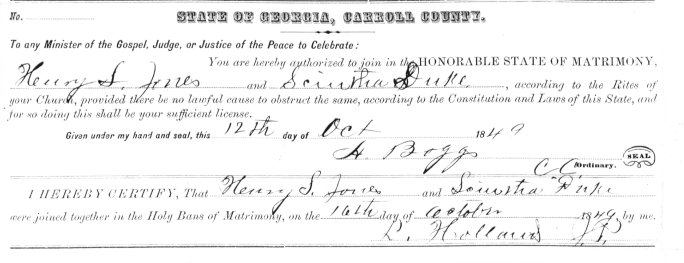 No.
STATE OF GEORGIA, CARROLL COUNTY.
To any Minister of the Gospel, Judge, or Justice of the Peace to Celebrate:
You are hereby authorized to join in the HONORABLE STATE OF MATRIMONY,
Henry S. Jones and Duke, according to the Rites of
your Church, provided there be no lawful cause to obstruct the same, according to the Constitution and Laws of this State, and
for so doing this shall be your sufficient license.
Given under my hand and seal, this 12th day of Oct 1849
H. Boggs
C.C. Ordinary. SEAL
I HEREBY CERTIFY, That Henry S. Jones and Duke
were joined together in the Holy Bans of Matrimony, on the 16th day of October 1849, by me.
L. Holland J.P.